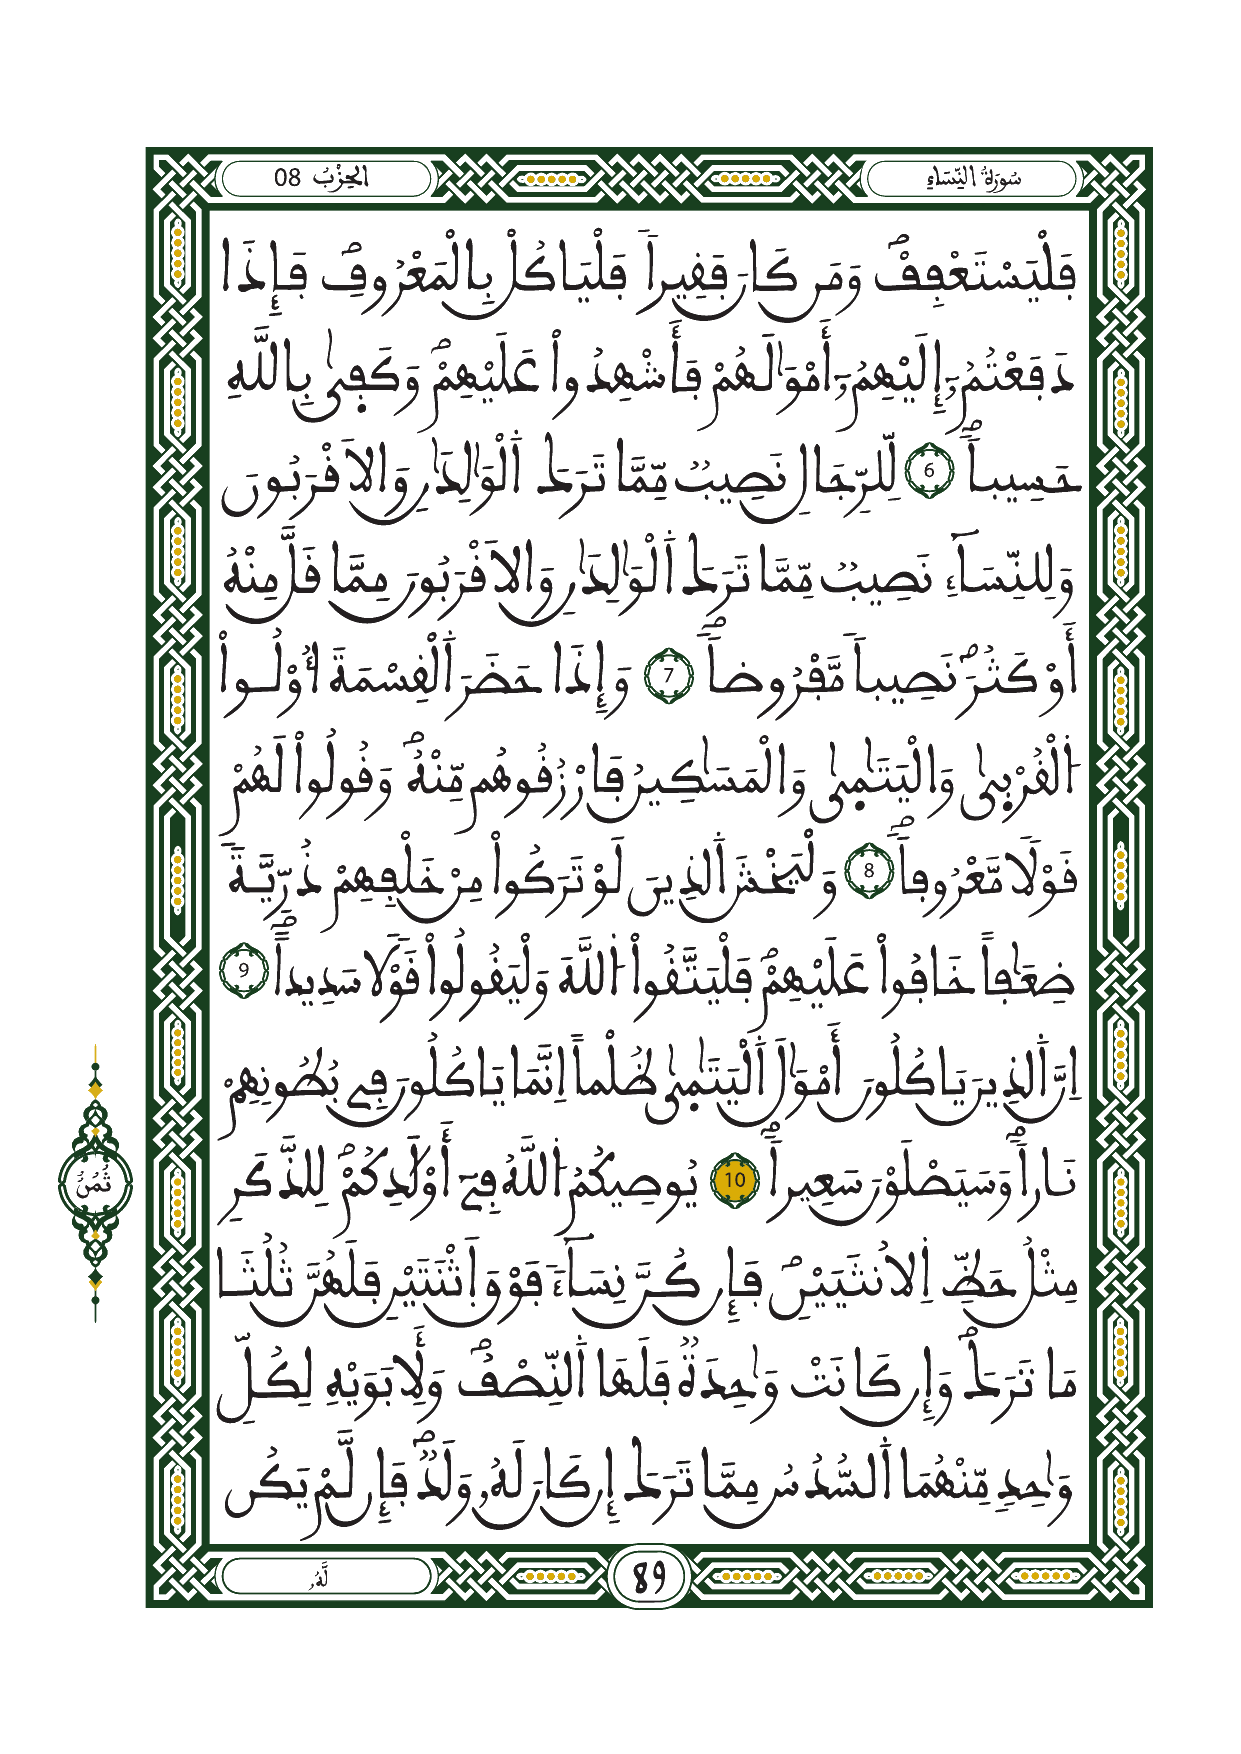 سُورَةُ النِّسَاءِ
الحِزْبُ 08
فَلْيَسْتَعْفِفْۖ وَمَن كَانَ فَقِيراٗ فَلْيَاكُلْ بِالْمَعْرُوفِۖ فَإِذَا
دَفَعْتُمُۥٓ إِلَيْهِمُۥٓ أَمْوَٰلَهُمْ فَأَشْهِدُواْ عَلَيْهِمْۖ وَكَف۪ىٰ بِاللَّهِ
حَسِيباٗۖ 6 لِّلرِّجَالِ نَصِيبٞ مِّمَّا تَرَكَ اَ۬لْوَٰلِدَٰنِ وَالَاقْرَبُونَ
وَلِلنِّسَآءِ نَصِيبٞ مِّمَّا تَرَكَ اَ۬لْوَٰلِدَٰنِ وَالَاقْرَبُونَ مِمَّا قَلَّ مِنْهُ
أَوْ كَثُرَۖ نَصِيباٗ مَّفْرُوضاٗۖ 7 وَإِذَا حَضَرَ اَ۬لْقِسْمَةَ أُوْلُواْ
اُ۬لْقُرْب۪ىٰ وَالْيَتَٰم۪ىٰ وَالْمَسَٰكِينُ فَارْزُقُوهُم مِّنْهُۖ وَقُولُواْ لَهُمْ
قَوْلاٗ مَّعْرُوفاٗۖ 8 وَلْيَخْشَ اَ۬لذِينَ لَوْ تَرَكُواْ مِنْ خَلْفِهِمْ ذُرِّيَّةٗ
ضِعَٰفاً خَافُواْ عَلَيْهِمْۖ فَلْيَتَّقُواْ اُ۬للَّهَ وَلْيَقُولُواْ قَوْلاٗ سَدِيداًۖ 9
اِنَّ اَ۬لذِينَ يَاكُلُونَ أَمْوَٰلَ اَ۬لْيَتَٰم۪ىٰ ظُلْماً اِنَّمَا يَاكُلُونَ فِے بُطُونِهِمْ
نَاراٗۖ وَسَيَصْلَوْنَ سَعِيراٗۖ 10 يُوصِيكُمُ اُ۬للَّهُ فِےٓ أَوْلَٰدِكُمْۖ لِلذَّكَرِ
مِثْلُ حَظِّ اِ۬لُانثَيَيْنِۖ فَإِن كُنَّ نِسَآءٗ فَوْقَ اَ۪ثْنَتَيْنِ فَلَهُنَّ ثُلُثَا
مَا تَرَكَۖ وَإِن كَانَتْ وَٰحِدَةٞ فَلَهَا اَ۬لنِّصْفُۖ وَلِأَبَوَيْهِ لِكُلِّ
وَٰحِدٖ مِّنْهُمَا اَ۬لسُّدُسُ مِمَّا تَرَكَ إِن كَانَ لَهُۥ وَلَدٞۖ فَإِن لَّمْ يَكُن
ثُمُنٌ
لَّهُۥ
89